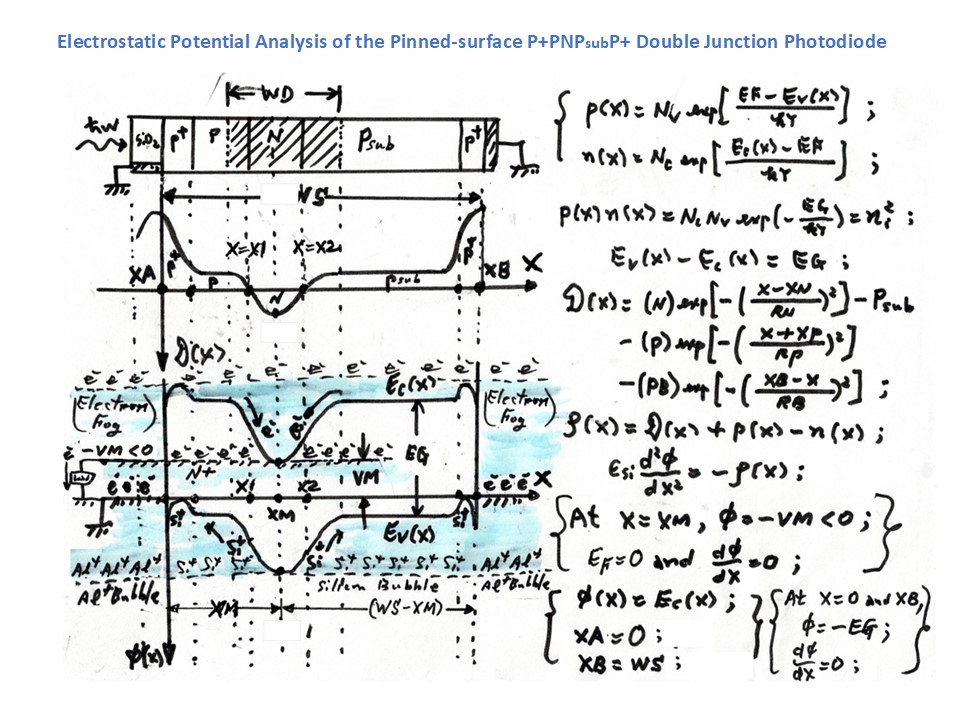 Electrostatic Potential Analysis of the Pinned-surface P+PNPsubP+ Double Junction Photodiode
WD
ħω
SiO2 P+ P N Psub P+
WS
X=X1 X=X2
XA P+ P N Psub P+ XB X
D(X)
e- e- e- e- e- e- e- e- e-
Ec(X)
(Electron Fog) (Electron Fog)
e- e-
e- -VM<0 e- e- e- e- e- e- e- e- e-
N+ VM EG
e- e- e- X1 X2 e- e- e- X
XM
Si+ Si+
Ev(X)
Si+ Si+
Al+ Al+ Al+ Si+ Si+ Si+ Si+ Si+ Si+ Si+ Al+ Al+
Al+ Bubble Silicon Bubble Al+ Bubble
XM (WS-XM)
φ(x)
{ p(X) = Nv exp[ (EF-Ev(X))/kT ] ;
n(X) = Nc exp[ (Ec(X)-EF)/kT ] ;
p(X)n(X) = Nc Nv exp(-EG/kT) = ni² ;
Ev(X) - Ec(X) = EG ;
D(X) = (N)exp[-((X-XN)/RN)²] - Psub
-(P)exp[-((X+XP)/RP)²]
-(PB)exp[-((XB-X)/RB)²] ;
ρ(X) = D(X) + p(X) - n(X) ;
εsi d²φ/dX² = -ρ(X) ;
{ At X=XM, φ=-VM<0 ; }
EF=0 and dφ/dX=0 ;
{ φ(X) = Ec(X) ; }
XA=0 ;
XB=WS ;
{ At X=0 and XB, }
φ=-EG ;
dφ/dX=0 ;